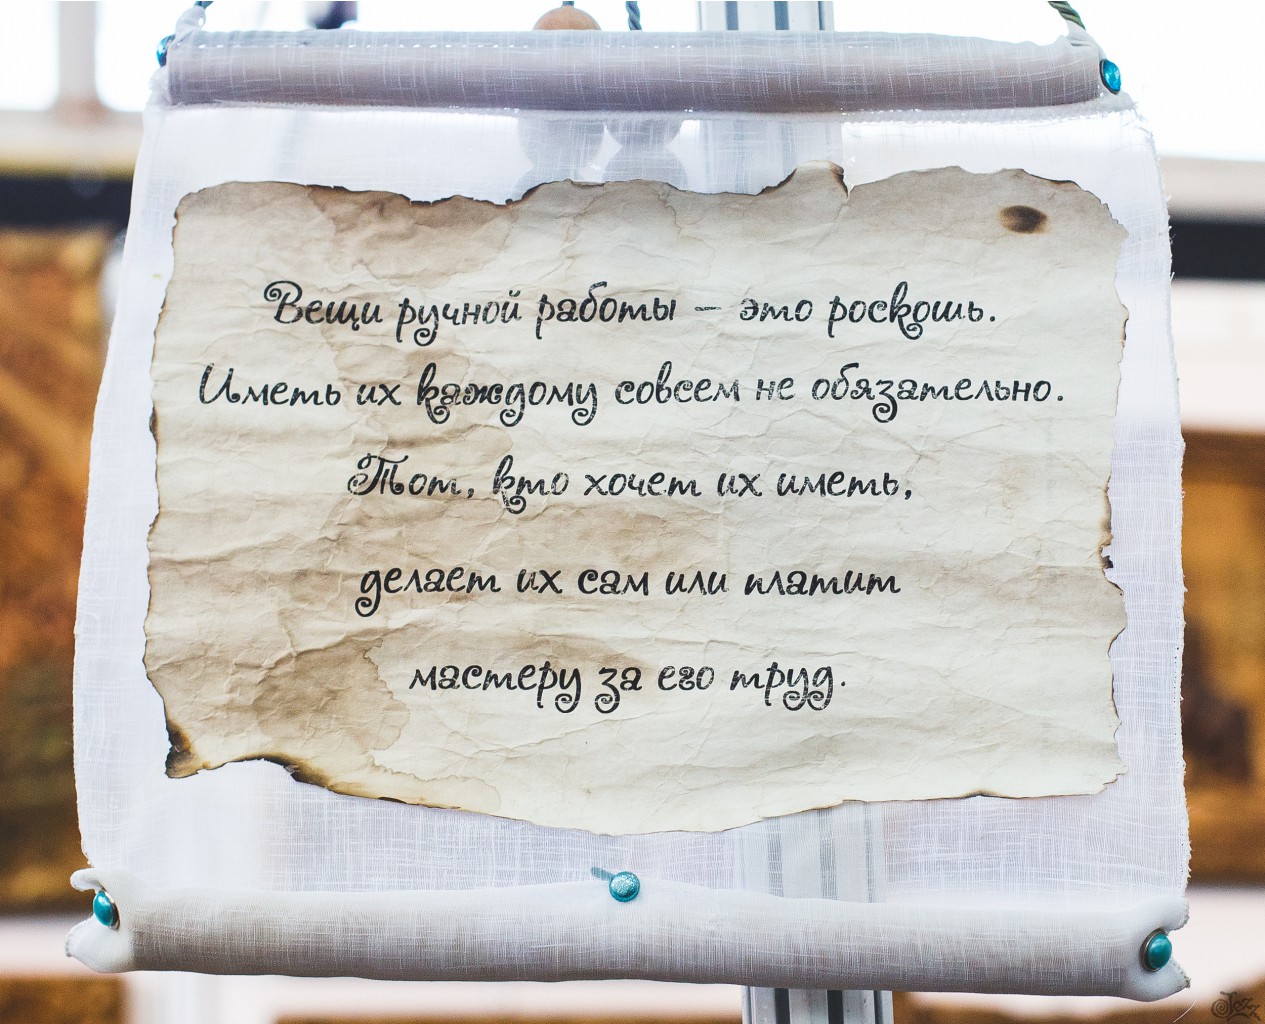 Вещи ручной работы – это роскошь.
Иметь их каждому совсем не обязательно.
Тот, кто хочет их иметь,
делает их сам или платит
мастеру за его труд.